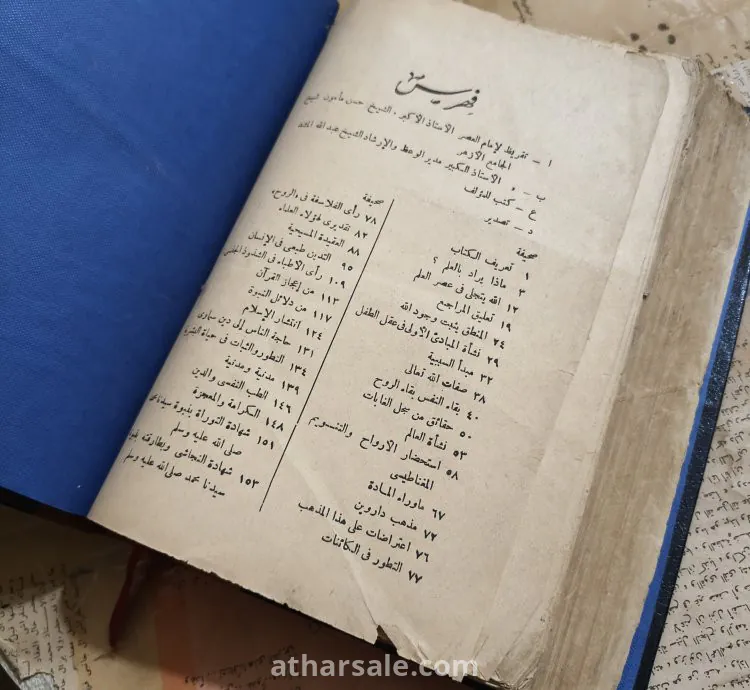 فهرس
ا — تقريظ لإمام العصر الأستاذ الأكبر، الشيخ حسن مأمون شيخ
الجامع الأزهر
ب — » الأستاذ الكبير مدير الوعظ والإرشاد الشيخ عبد الله المشد
ع — كتب للمؤلف
د — تصدير
صحيفة
١ تعريف الكتاب
٣ ماذا يراد بالعلم ؟
١٢ الله يتجلى في عصر العلم
١٩ تعليق المراجع
٢٤ المنطق يثبت وجود الله
٢٩ نشأة المبادئ الأولى في عقل الطفل
٣٢ مبدأ السببية
٣٨ صفات الله تعالى
٤٠ بقاء النفس بقاء الروح
٥٠ حقائق من سجل الغابات
٥٣ نشأة العالم
٥٨ استحضار الأرواح والتنويم
المغناطيسي
٦٧ ماوراء المادة
٧٢ مذهب داروين
٧٦ اعتراضات على هذا المذهب
٧٧ التطور في الكائنات
صحيفة
٧٨ رأى الفلاسفة في «الروح»
٨٢ تقديرى لهؤلاء العلماء
٨٨ العقيدة المسيحية
٩٥ التدين طبيعى في الإنسان
١٠٩ رأى الأطباء في الشذوذ الجنسى
١١٣ من إعجاز القرآن
١١٧ من دلائل النبوة
١٢٤ انتشار الإسلام
١٣١ حاجة الناس إلى دين سماوى
١٣٤ التطور والثبات في حياة البشرية
١٣٩ مدنية ومدنية
١٤٦ الطب النفسى والدين
١٤٨ الكرامة والمعجزة
١٥١ شهادة التوراة بنبوة سيدنا محمد
صلى الله عليه وسلم
١٥٣ شهادة النجاشى وبطارقته بنبوة
سيدنا محمد صلى الله عليه وسلم
atharsale.com